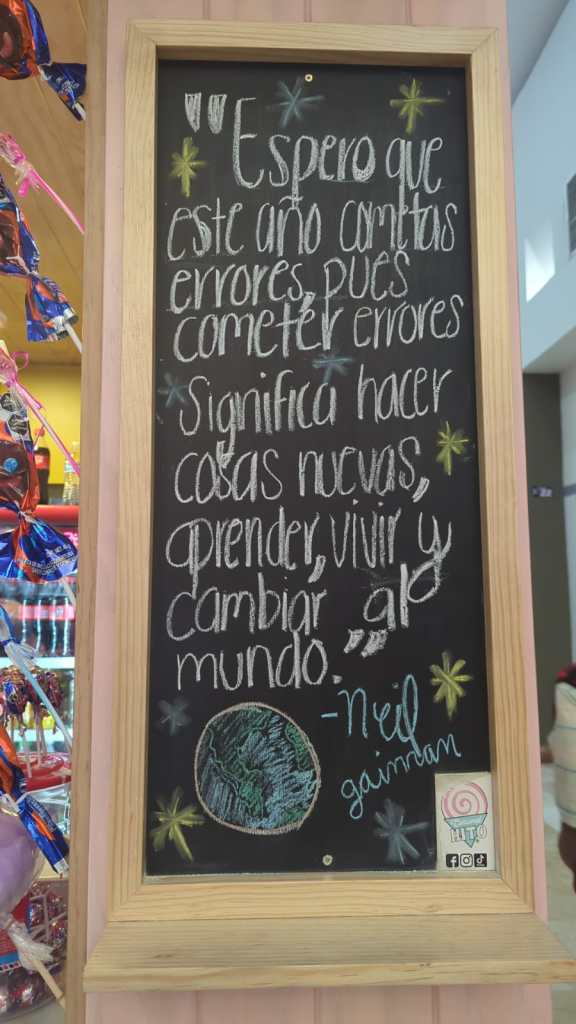 "Espero que
este año cometas
errores, pues
cometer errores
Significa hacer
cosas nuevas,
aprender, vivir y
cambiar al
mundo."
-Neil
gaiman
HITO